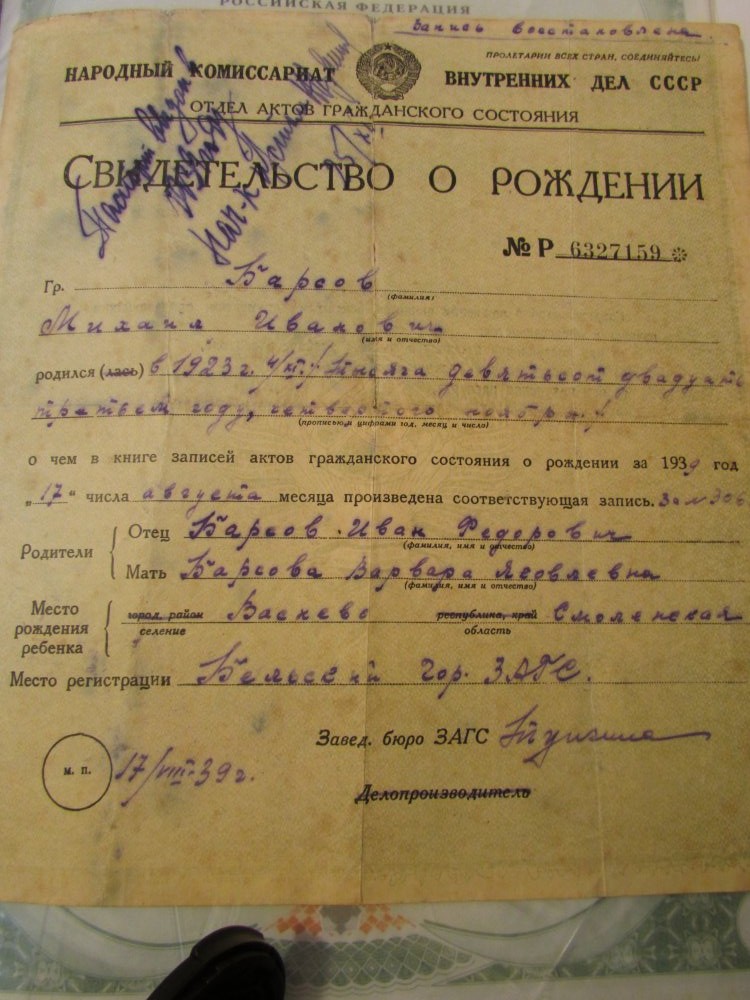 РОССИЙСКАЯ ФЕДЕРАЦИЯ
Запись восстановлена.
ПРОЛЕТАРИИ ВСЕХ СТРАН, СОЕДИНЯЙТЕСЬ!
НАРОДНЫЙ КОМИССАРИАТ ВНУТРЕННИХ ДЕЛ СССР
ОТДЕЛ АКТОВ ГРАЖДАНСКОГО СОСТОЯНИЯ
Паспорт выдан
СВИДЕТЕЛЬСТВО О РОЖДЕНИИ
№ Р 6327159
Гр. Барсов
(фамилия)
Михаил Иванович
(имя и отчество)
родился (лась) в 1923 г. 4/XI / Тысяча девятьсот двадцать
третьем году, четвертого ноября /
(прописью и цифрами год, месяц и число)
о чем в книге записей актов гражданского состояния о рождении за 1939 год
„17" числа августа месяца произведена соответствующая запись. За №
Родители
Отец Барсов Иван Федорович
(фамилия, имя и отчество)
Мать Барсова Варвара Яковлевна
(фамилия, имя и отчество)
Место рождения ребенка
город, район Васнево республика, край Смоленская
селение область
Место регистрации Бельский гор. ЗАГС.
Завед. бюро ЗАГС
м. п. 17/VIII-39 г.
Делопроизводитель